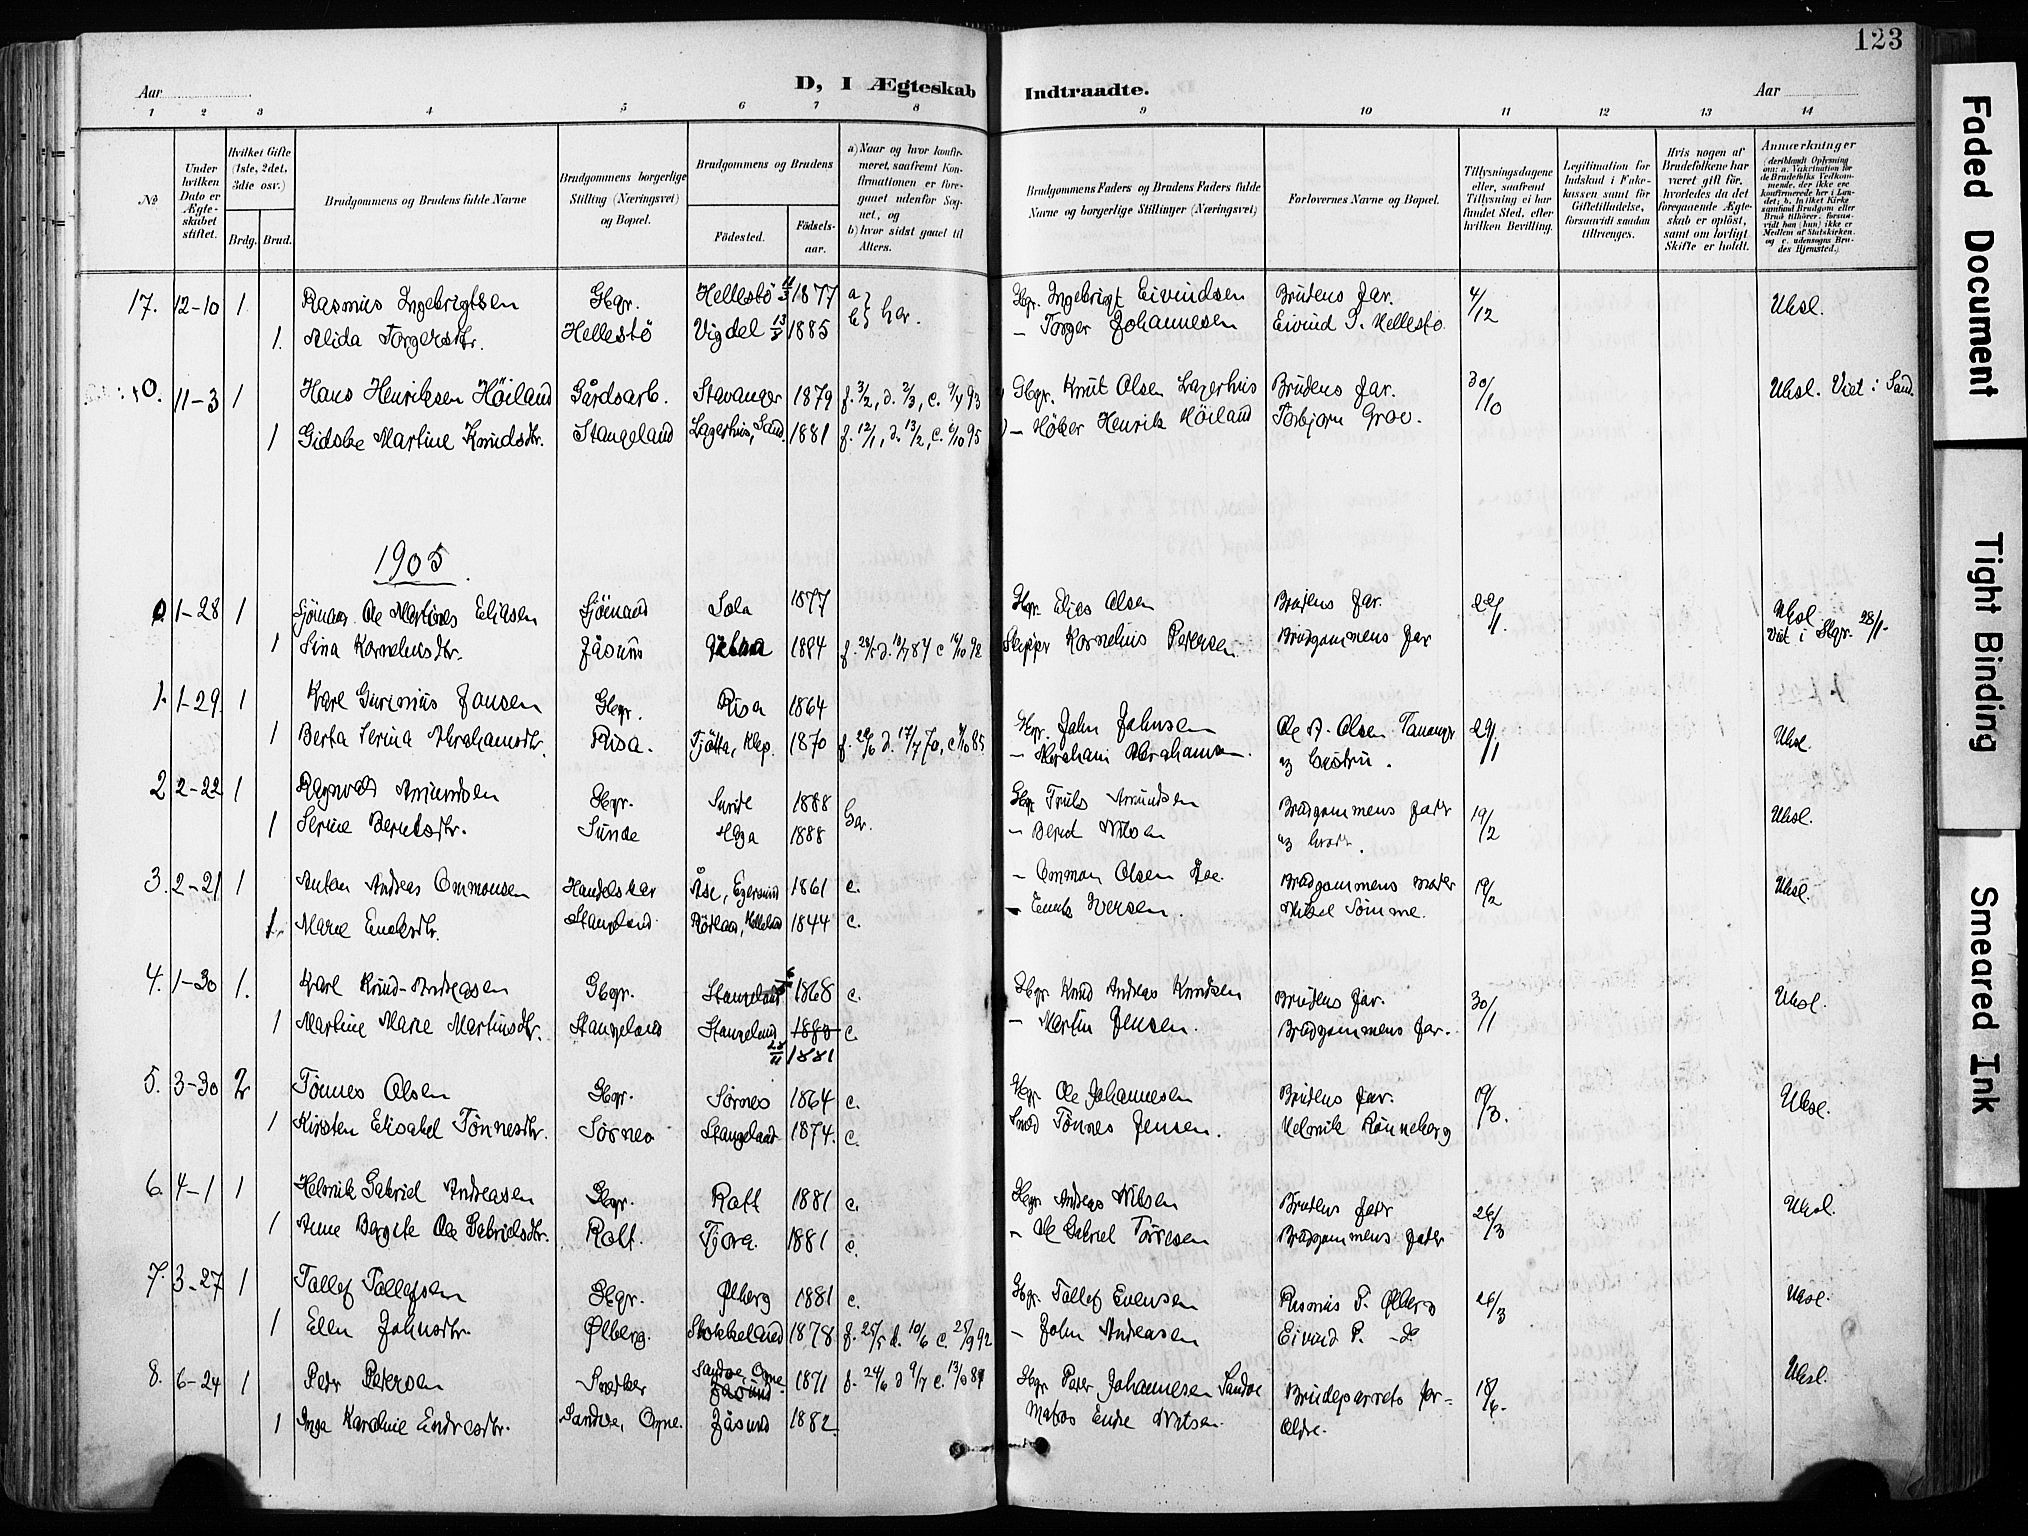 123
Aar
D, I Ægteskab Indtraadte.
Aar
1 2 3 4 5 6 7 8 9 10 11 12 13 14
№
Under hvilken Dato er Ægteskabet stiftet.
Hvilket Gifte (1ste, 2det, 3die osv.)
Brdg. Brud.
Brudgommens og Brudens fulde Navne
Brudgommens borgerlige Stilling (Næringsvei) og Bopæl.
Brudgommens og Brudens
Fødested. Fødselsaar.
a) Naar og hvor konfirmeret, saafremt Konfirmationen er foregaaet udenfor Sognet, og
b) hvor sidst gaaet til Alters.
Brudgommens Faders og Brudens Faders fulde Navne og borgerlige Stillinger (Næringsvei)
Forlovernes Navne og Bopæl.
Tillysningsdagene eller, saafremt Tillysning ei har fundet Sted, efter hvilken Bevilling.
Legitimation for Indskud i Enkekassen samt for Giftetilladelse, forsaavidt saadan tiltrænges.
Hvis nogen af Brudefolkene har været gift før, hvorledes da det foregaaende Ægteskab er opløst, samt om lovligt Skifte er holdt.
Anmærkninger (deriblandt Oplysning om: a. Vaksination for de Brudefolks Vedkommende, der ikke ere konfirmerede her i Landet; b. hvilket Kirkesamfund Brudgom eller Brud tilhører, forsaavidt han (hun) ikke er Medlem af Statskirken, og c. udensogns Brudes Hjemsted.)
17. 12-10 1 Rasmus Ingebrigtsen Gbgr. Hellestö 1877 a } her. Gbgr. Ingebrigt Eivindsen Brudens far. 4/12 Uksl.
1. Alida Torgersdtr. Hellestö Vigdel 13/ 1885 b - Torger Johannesen Eivind I. Hellestö
0. 11-3 1 Hans Henriksen Höiland Gårdsarb. Stavanger 1879 f. 3/2, d. 2/3, c. 9/4 93 Gbgr. Knut Olsen Lagerhus Brudens far. 30/10 Uksl. Viet i Sand.
1 Gidske Martine Knudsdtr. Stangeland Lagerhus, Sand. 1881 f. 12/1, d. 13/2, c. 6/10 95 - Höker Henrik Höiland Torbjorn Grov.
1905.
1-28 1 Sjömand Ole Martines Eliasen Sjömand Sola 1877 Gbgr. Elias Olsen Brudens far. 22/1. Uksl. Viet i Sbgr. 28/1.
1 Sina Kornelusdtr. Jåsund 1884 Skipper Kornelius Petersen Brudgommens far
1. 1-29 1 Karl Gurinius Jansen Gbgr. Risa 1864 Gbgr. John Johnsen Ole A. Olsen Tananger 29/1 Uksl.
1 Berta Serina Abrahamsdtr. Risa. Tjötta, Klep. 1870 f. 20/6 d. 17/7 70, c. 4/10 85 - Abraham Abrahamsen.
2 2-22 1 Ragnvald Amundsen Gbgr. Sunde 1888 her. Gbgr. Truls Amundsen Brudgommens fader 19/2 Uksl.
1 Serine Berntsdtr. Sunde Haga 1888 - Bernt Nilsen
3. 2-21 1 Anton Andreas Ommonsen Handelskar Åse, Egersund 1861 c. - Ommon Olsen Åse. Brudgommens moder 19/2 Uksl.
1. Marie Enoksdtr. Stangeland 1844 c. - Enok Iversen. Mikal Sömme.
4. 1-30 1. Karl Knud Andreasen Gbgr. Stangeland 1868 c. Gbgr Knud Andreas Knudsen Brudens far. 30/1 Uksl.
1 Martine Marie Martinsdtr. Stangeland Stangeland 1880 c - Martin Jensen. Brudgommens far.
28/11 1881
5. 3-30 2 Tönnes Olsen Gbgr. Sörnes 1864 c. Gbgr Ole Johannesen Brudens far. 19/3. Uksl.
1 Kirsten Elisabet Tönnesdtr. Sörnes Stangeland 1874. c. Smed Tönnes Jensen. Helmik Rönneberg
6. 4-1 1 Helmik Gabriel Andreasen Gbgr. Rott 1881 c. Gbgr Andreas Nilsen Brudens fader 26/3 Uksl.
1 Anne Bergite Ole Gabrielsdtr. Rott. Tjora. 1881 c. - Ole Gabriel Törresen Brudgommens fader
7. 3-27 1 Tollef Tollefsen Gbgr. Ølberg 1881 c. Gbgr. Tollef Evensen Rasmus P. Ølberg 26/3 Uksl.
1 Ellen Johnsdtr. Ølberg. Stokkeland 1878 f. 25/5 d. 10/6 c. 25/9 92 - John Andreasen Eivind P. - Do
8. 6-24 1 Peder Petersen Snedker Sandve, Ogne Jåsund 1871 f. 24/6 d 9/7 c. 13/10 89 Gbgr Peter Johannesen Sandve Brudeparrets for- 18/6. Uksl.
1 Inga Karoline Endresdtr. Sandve, Ogne. Jåsund 1882. Matros Endre Nilsen. ældre.
Faded Document
Tight Binding
Smeared Ink